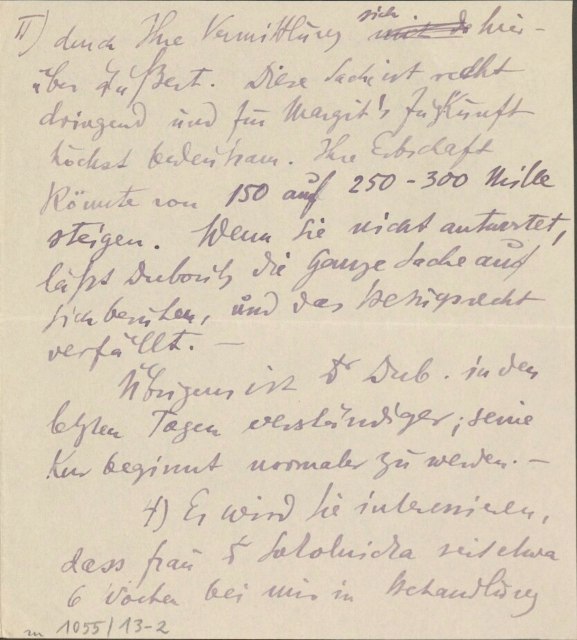 II) durch Ihre Vermittlung sich hier-
über äußert. Diese Sache ist recht
dringend und für Margit's Zukunft
höchst bedeutsam. Ihre Erbschaft
könnte von 150 auf 250-300 Mille
steigen. Wenn sie nicht antwortet,
läßt Dubovitz die ganze Sache auf
sich beruhen, und das Bezugsrecht
verfällt. —
Übrigens ist Dr Dub. in den
letzten Tagen verständiger; seine
Kur beginnt normaler zu werden. —
4) Es wird Sie interessieren,
dass Frau Dr Sokolnicka seit etwa
6 Wochen bei mir in Behandlung
1055/13-2